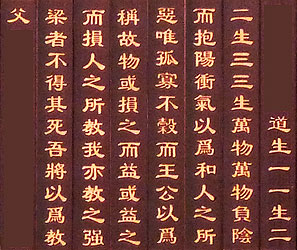 道生一一生二
二生三三生萬物萬物負陰
而抱陽衝氣以爲和人之所
惡唯孤寡不穀而王公以爲
稱故物或損之而益或益之
而損人之所教我亦教之强
梁者不得其死吾將以爲教
父